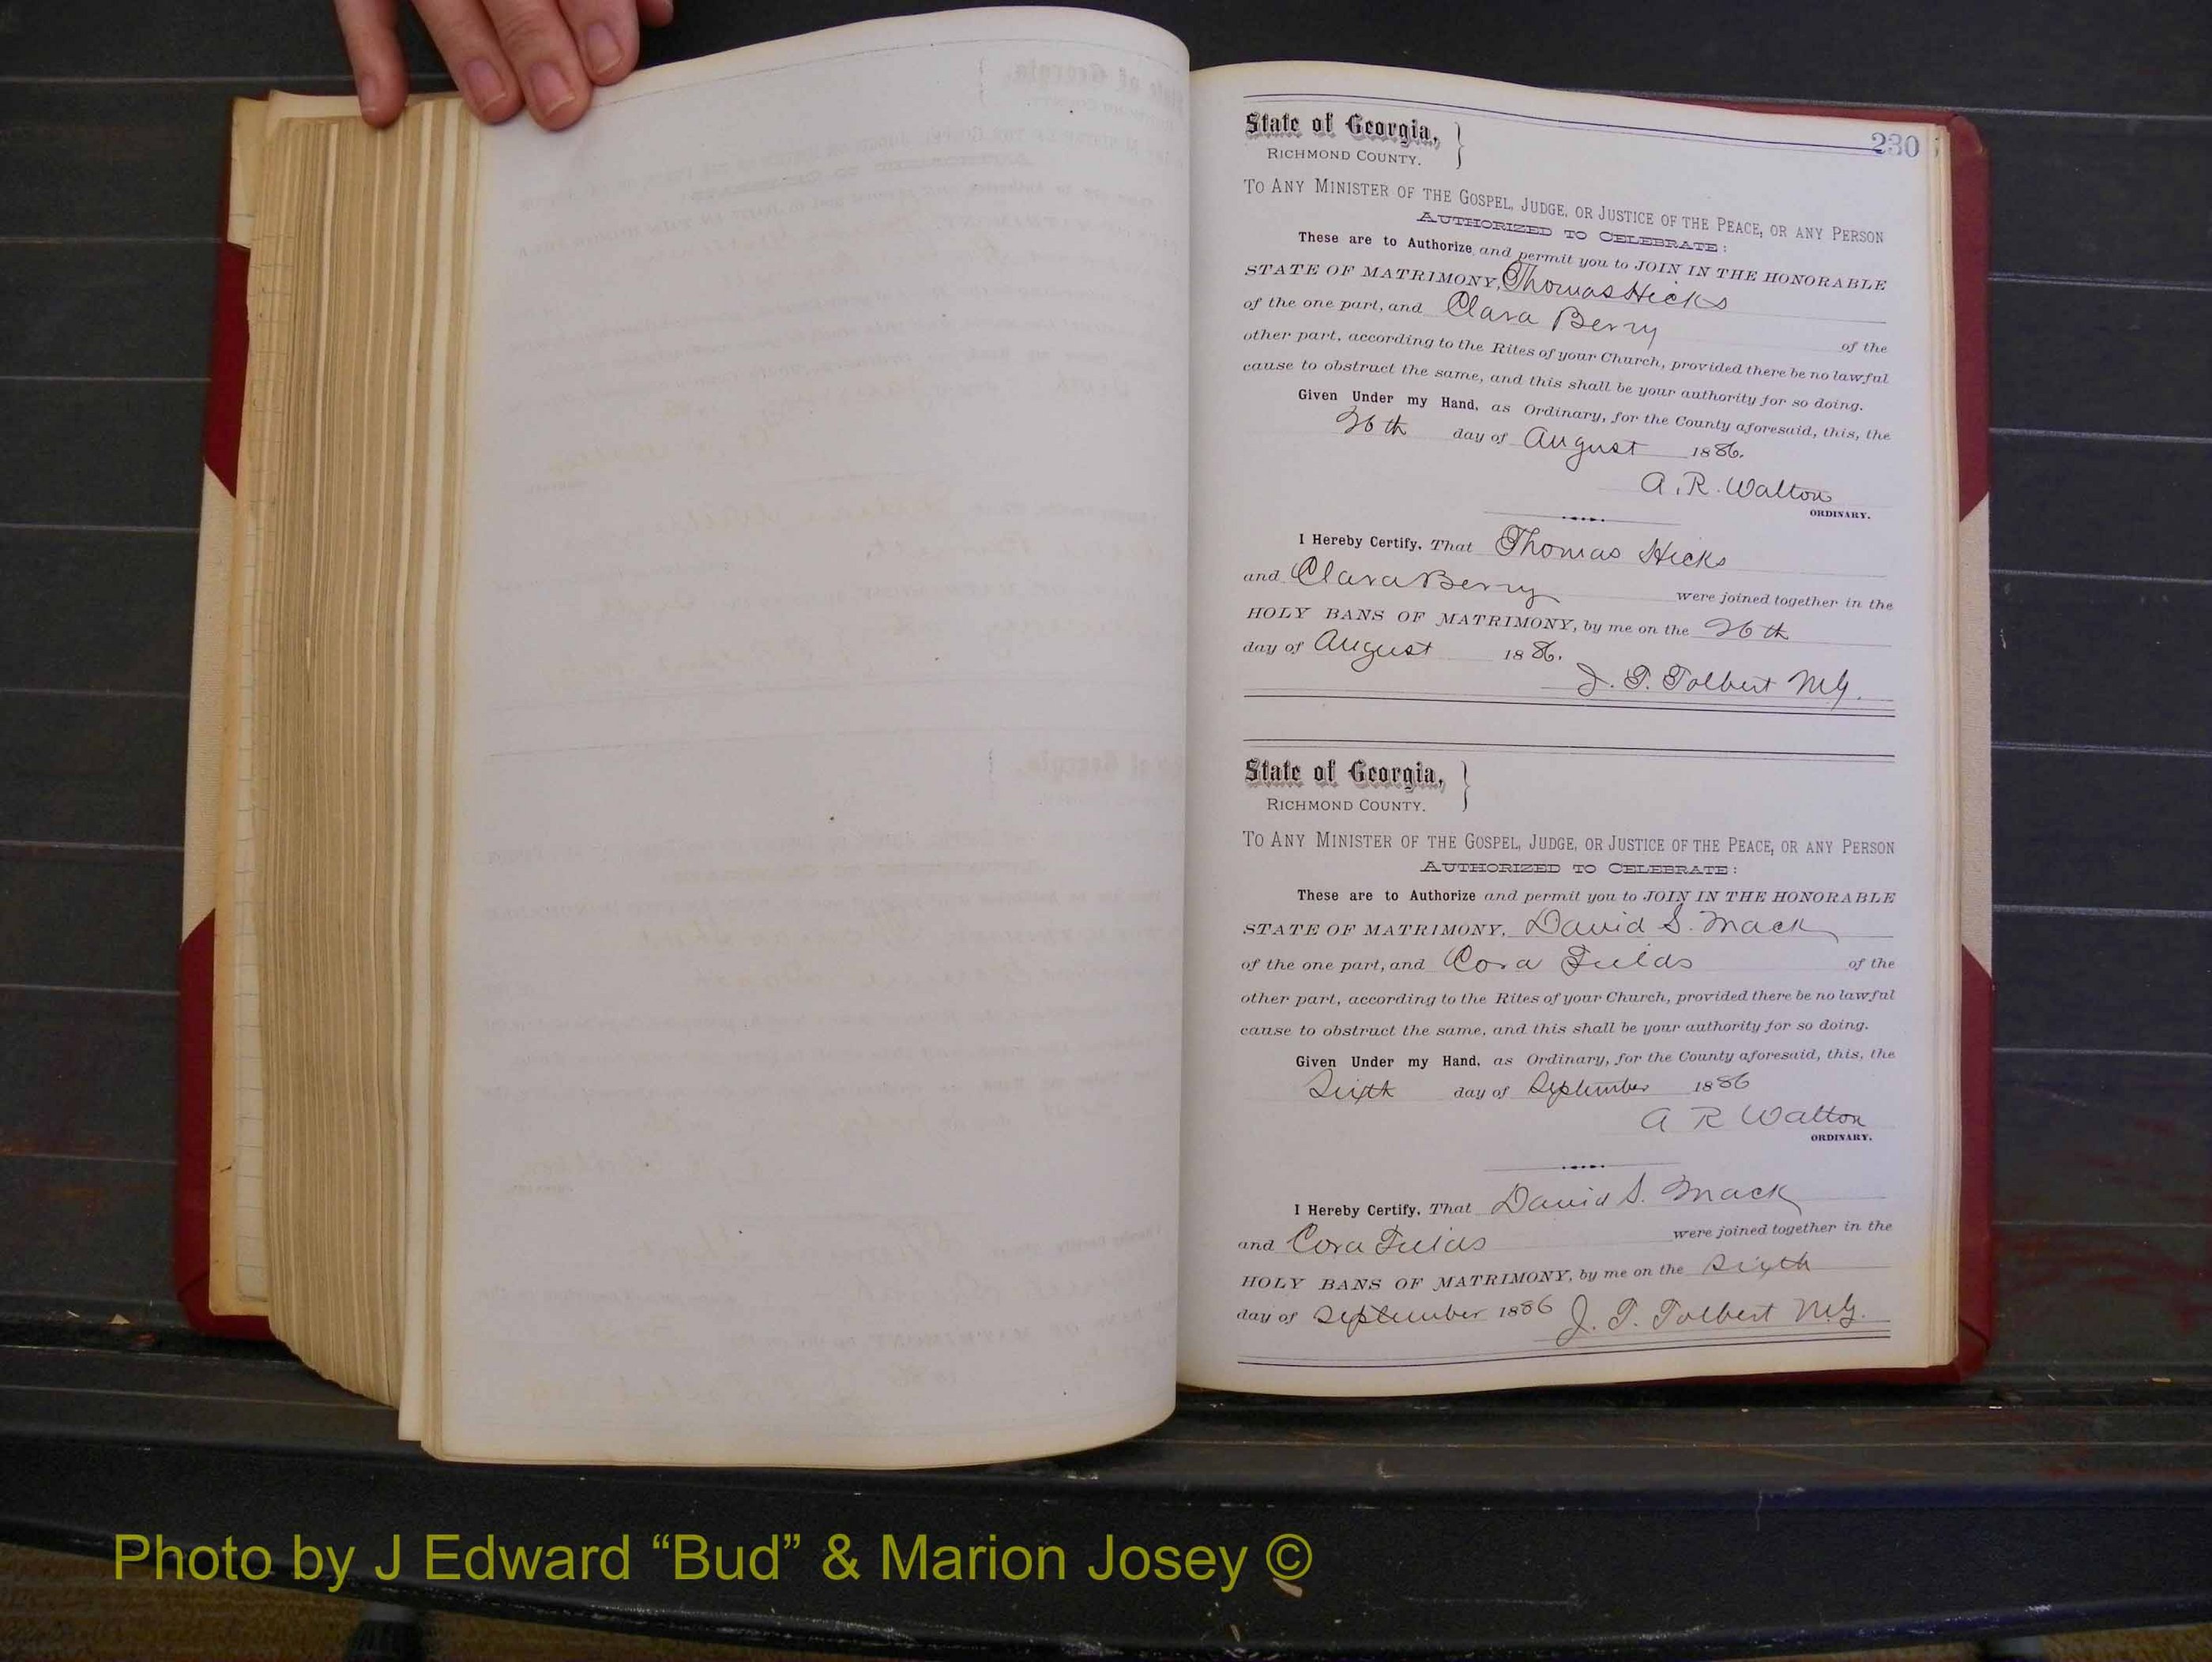 230
State of Georgia,
RICHMOND COUNTY.
TO ANY MINISTER OF THE GOSPEL, JUDGE, OR JUSTICE OF THE PEACE, OR ANY PERSON
AUTHORIZED TO CELEBRATE:
These are to Authorize and permit you to JOIN IN THE HONORABLE
STATE OF MATRIMONY, Thomas Hicks
of the one part, and Clara Berry of the
other part, according to the Rites of your Church, provided there be no lawful
cause to obstruct the same, and this shall be your authority for so doing.
Given Under my Hand, as Ordinary, for the County aforesaid, this, the
26th day of August 1886.
A. R. Walton
ORDINARY.
I Hereby Certify, That Thomas Hicks
and Clara Berry were joined together in the
HOLY BANS OF MATRIMONY, by me on the 26th
day of August 1886.
J. T. Tolbert M.G.
State of Georgia,
RICHMOND COUNTY.
TO ANY MINISTER OF THE GOSPEL, JUDGE, OR JUSTICE OF THE PEACE, OR ANY PERSON
AUTHORIZED TO CELEBRATE:
These are to Authorize and permit you to JOIN IN THE HONORABLE
STATE OF MATRIMONY, David S. Mack
of the one part, and Cora Fields of the
other part, according to the Rites of your Church, provided there be no lawful
cause to obstruct the same, and this shall be your authority for so doing.
Given Under my Hand, as Ordinary, for the County aforesaid, this, the
Sixth day of September 1886
A R Walton
ORDINARY.
I Hereby Certify, That David S. Mack
and Cora Fields were joined together in the
HOLY BANS OF MATRIMONY, by me on the Sixth
day of September 1886 J. T. Tolbert M.G.
Photo by J Edward “Bud” & Marion Josey ©